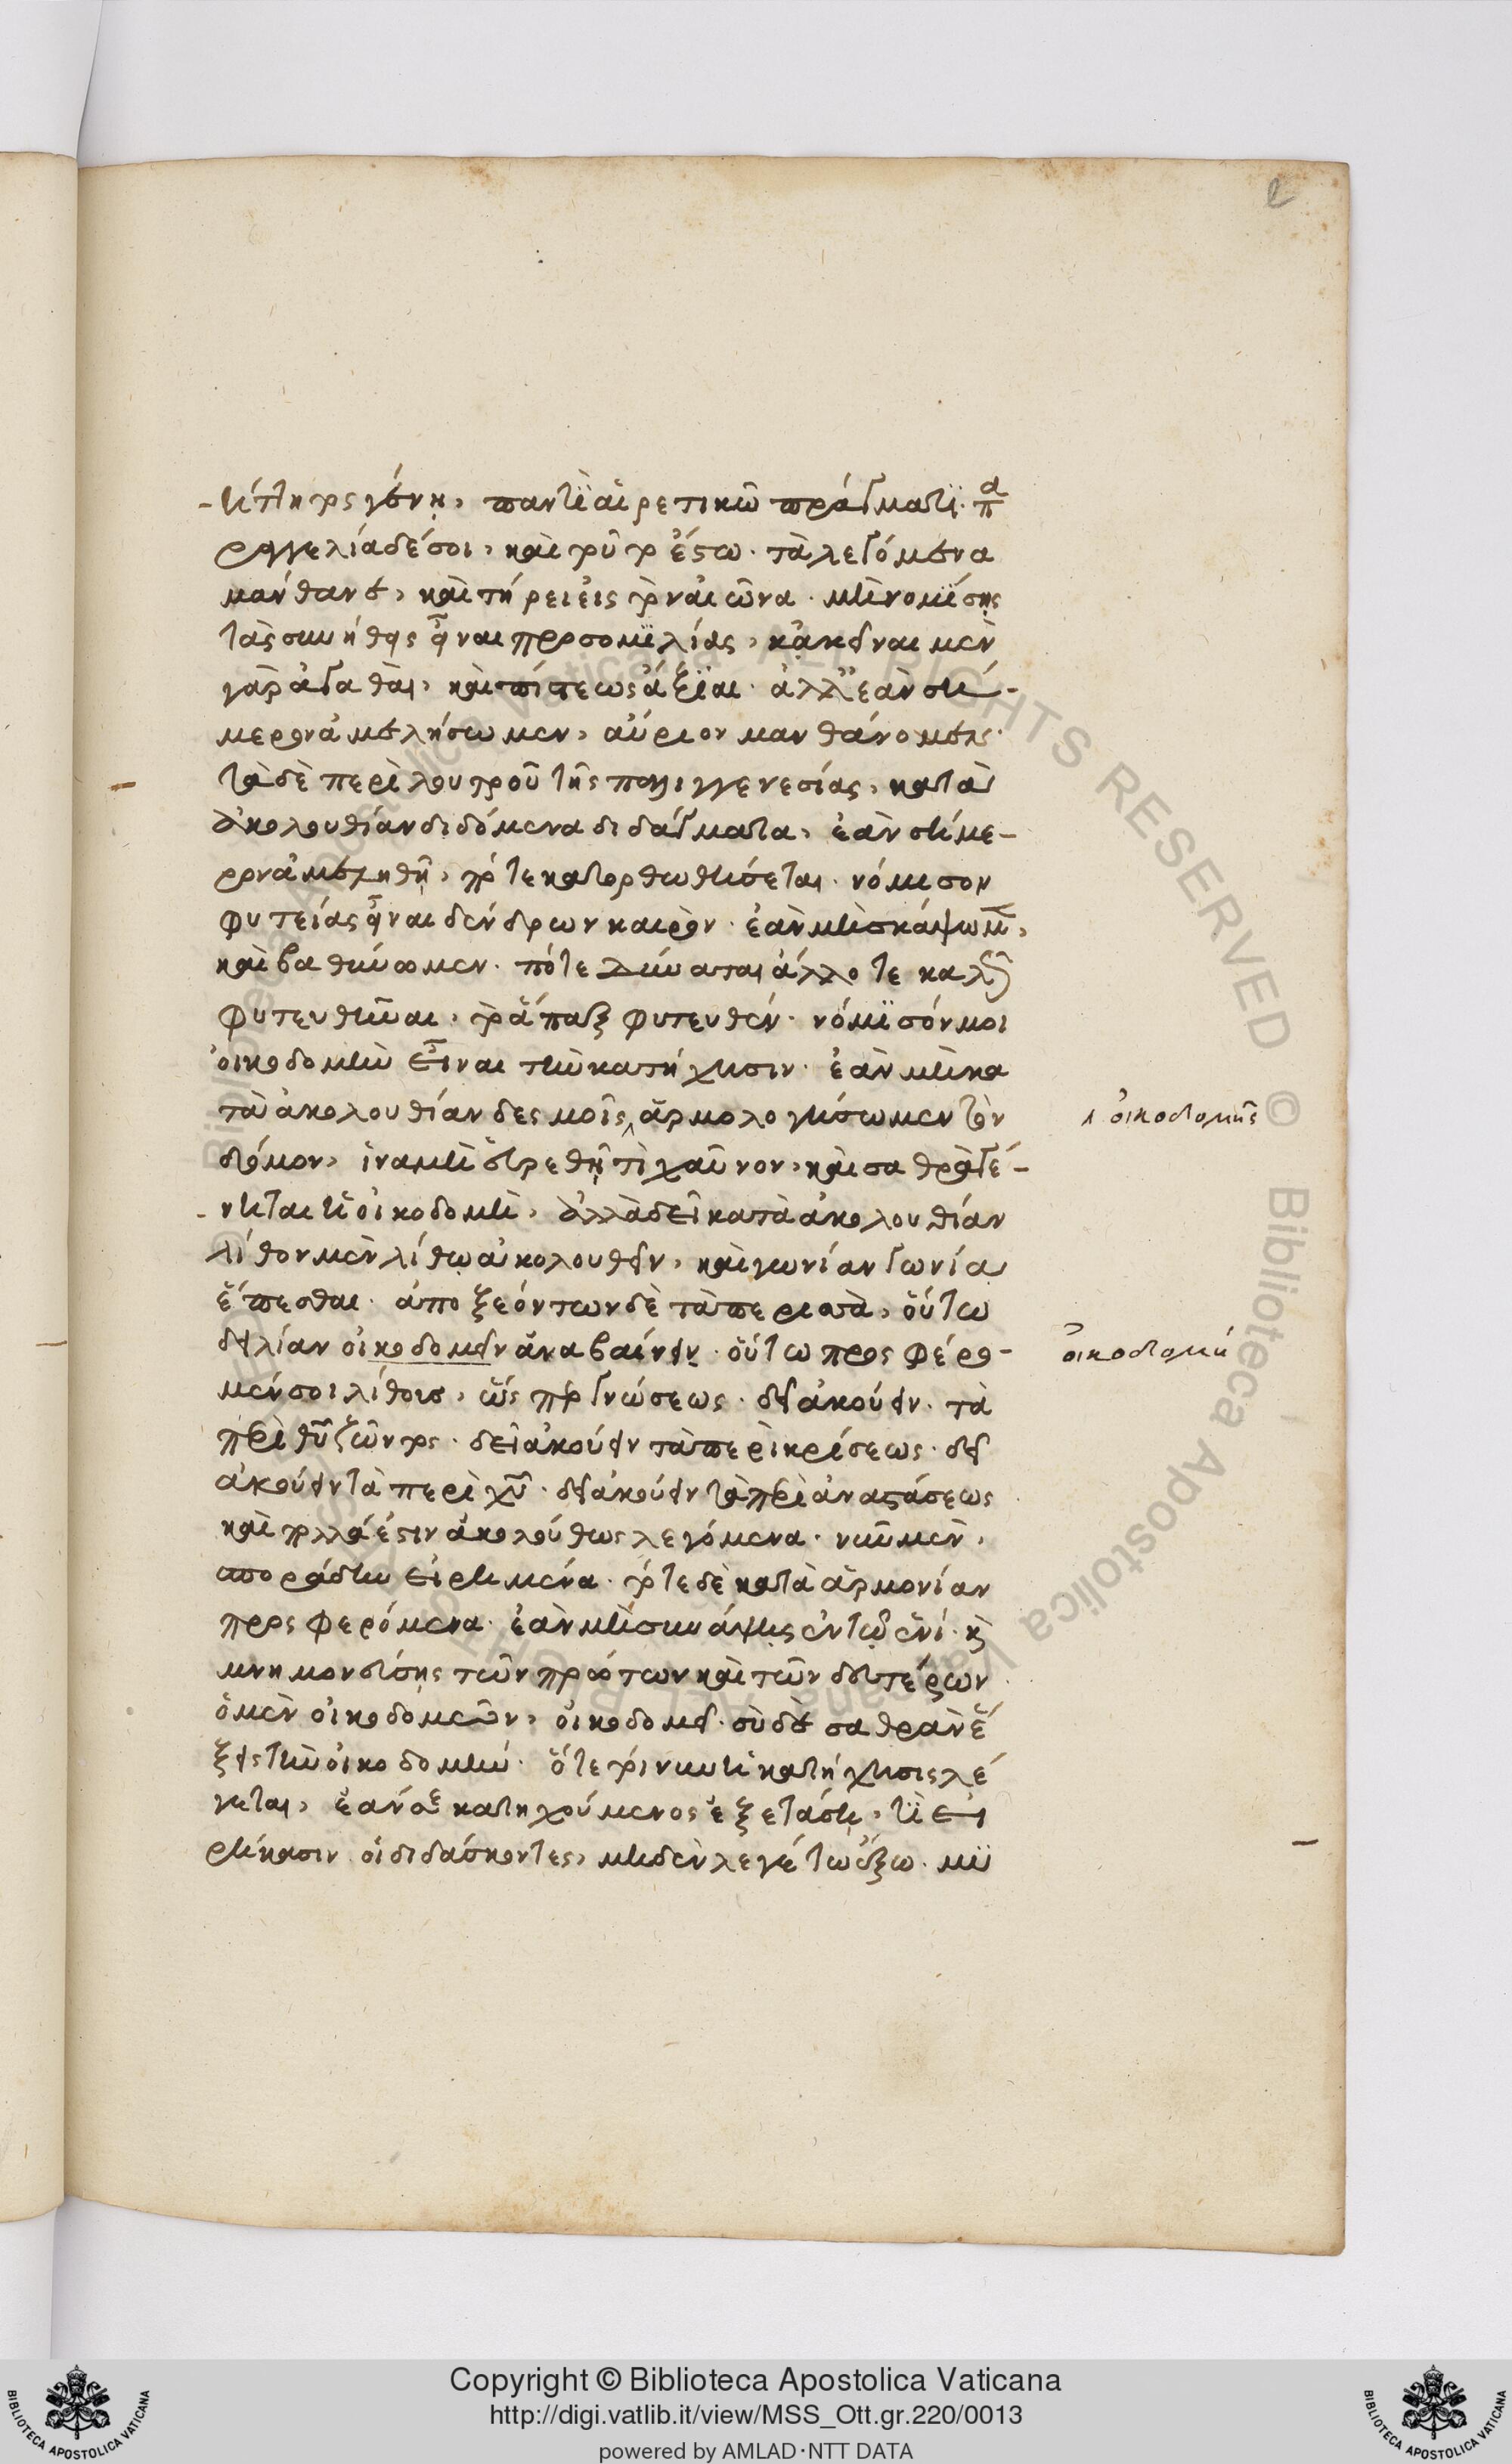 ήττητος γένη, παντὶ αἱρετικῶ πράγματι. πα
ραγγελία δέ σοι, καὶ τοῦτο ἔστω. τὰ λεγόμενα
μάνθανε, καὶ τήρει εἰς τὸν αἰῶνα. μὴ νομίσῃς
τὰς συνήθεις εἶναι προσομιλίας, κἀκεῖναι μὲν
γὰρ ἀγαθαὶ, καὶ πίστεως ἄξιαι. ἀλλ' ἐὰν σή-
μερον ἀμελήσωμεν, αὔριον μανθάνομεν.
τὰ δὲ περὶ λουτροῦ τῆς παλιγγενεσίας, κατὰ
ἀκολουθίαν διδόμενα διδάγματα, ἐὰν σήμε-
ρον ἀμεληθῆ, πότε κατορθωθήσεται. νόμισον
φυτείας εἶναι δένδρων καιρὸν. ἐὰν μὴ σκάψωμεν,
καὶ βαθύνωμεν. πότε δύναται ἄλλοτε καλῶς
φυτευθῆναι, τὸ ἅπαξ φυτευθέν. νόμισόν μοι
οἰκοδομὴν εἶναι τὴν κατήχησιν. ἐὰν μὴ κα
τὰ ἀκολουθίαν δεσμοῖς ἁρμολογήσωμεν τὸν
δόμον, ἵνα μὴ εὑρεθῆ τὶ χαῦνον, καὶ σαθρὰ γέ-
νηται ἡ οἰκοδομὴ, ἀλλὰ δεῖ κατὰ ἀκολουθίαν
λίθον μὲν λίθω ἀκολουθεῖν, καὶ γωνίαν γωνία
ἕπεσθαι. ἀποξεόντων δὲ τὰ περιττὰ, οὕτω
δελίαν οἰκοδομεῖν ἀναβαίνειν. οὕτω προσφέρο-
μέν σοι λίθους, ὡς περὶ γνώσεως. δεῖ ἀκούειν. τὰ
περὶ θυ ζῶντος. δεῖ ἀκούειν τὰ περὶ κρίσεως. δεῖ
ἀκούειν τὰ περὶ χυ. δεῖ ἀκούειν τὰ περὶ ἀναστάσεως
καὶ πολλά ἐστιν ἀκολούθως λεγόμενα. νῦν μὲν,
σποράδην εἰρημένα. τότε δὲ κατὰ ἁρμονίαν
προσφερόμενα. ἐὰν μὴ συνάψῃς ἐν τῶ ἑνί. κ
μνημονεύσῃς τῶν πρώτων καὶ τῶν δευτέρων
ὁ μὲν οἰκοδομῶν, οἰκοδομεῖ. σὺ δὲ σαθρὰν ἕ
ξεις τὴν οἰκοδομήν. ὅτε τοίνυν ἡ κατήχησις λέ
γεται, ἐάν σε κατηχούμενος ἐξετάσῃ, τί εἰ
ρήκασιν οἱ διδάσκοντες, μηδὲν λεγέτω ἔξω. μυ
λ οἰκοδομῆς
οἰκοδομή
Copyright © Biblioteca Apostolica Vaticana
http://digi.vatlib.it/view/MSS_Ott.gr.220/0013
powered by AMLAD·NTT DATA